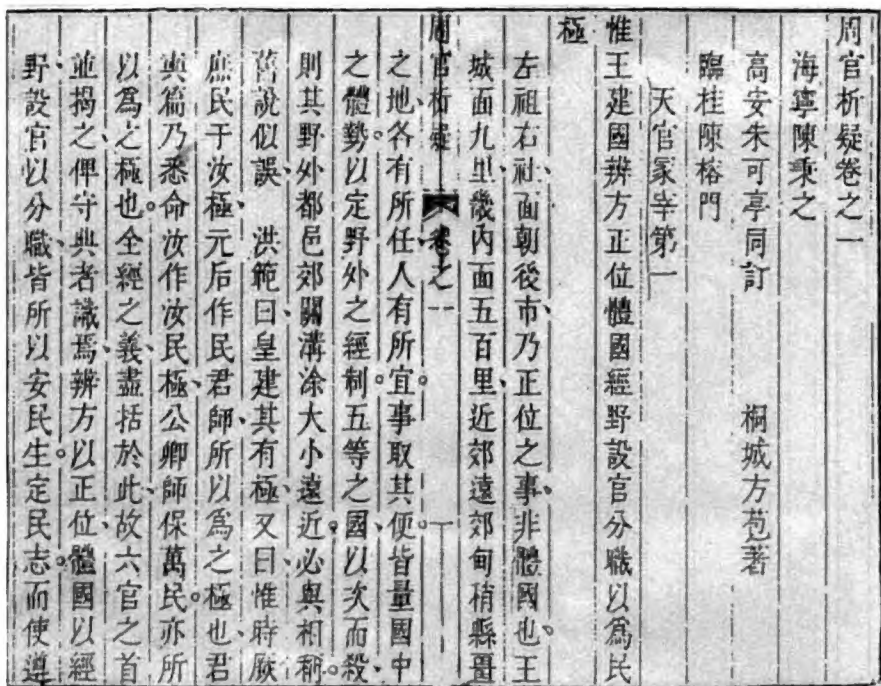 周官析疑卷之一
海寧陳秉之
高安朱可亭同訂　　桐城方苞著
臨桂陳榕門
天官冢宰第一
惟王建國辨方正位體國經野設官分職以為民
極
左祖右社、面朝後市、乃正位之事、非體國也、王
城面九里、畿內面五百里、近郊遠郊甸稍縣畺
周官析疑　卷之一　一
之地、各有所任、人有所宜。事取其便。皆量國中
之體勢。以定野外之經制。五等之國、以次而殺、
則其野外都邑郊關溝涂大小遠近、必與相稱。
舊說似誤、　洪範曰、皇建其有極、又曰、惟時厥
庶民于汝極、元后作民君師、所以爲之極也、君
奭篇乃悉命汝作汝民極、公卿師保萬民。亦所
以爲之極也。全經之義、盡括於此、故六官之首
並揭之、俾守典者識焉、辨方以正位、體國以經
野、設官以分職、皆所以安民生。定民志。而使遵